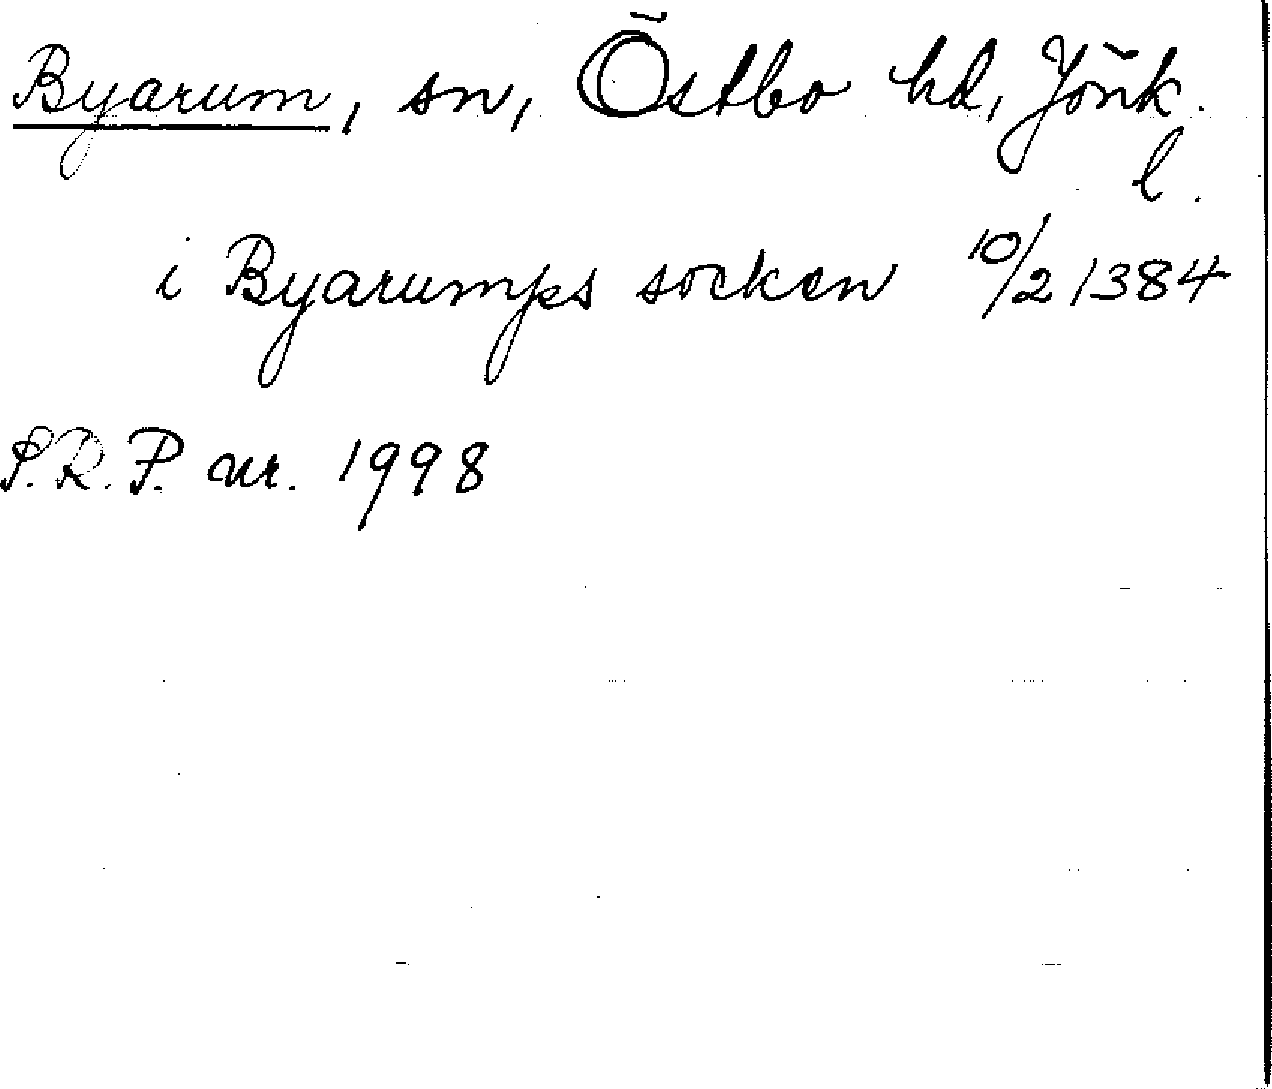 Byarum, sn, Östbo hd, Jönk.
l.
i Byarumps socken 10/2 1384
S.R.P. nr. 1998